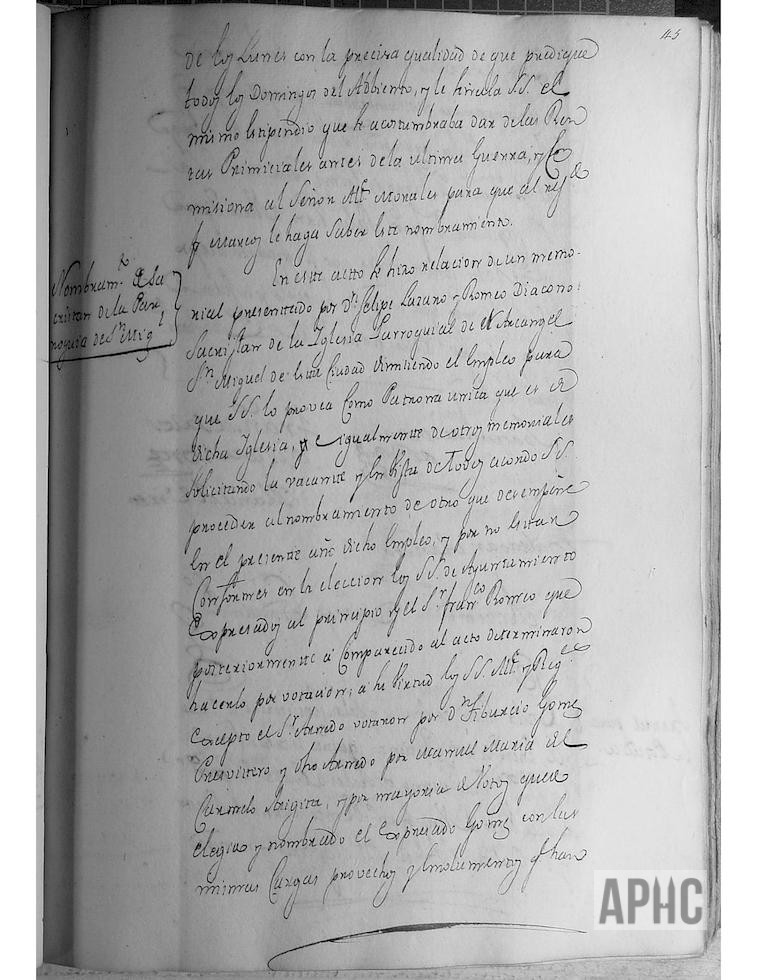 45
de los Lunes con la precisa qualidad de que predique
todos los Domingos del Adbiento, y le señala S.S. el
mismo Estipendio que se acostumbraba dar de las Ren
tas Primiciales antes de la ultima Guerra, y Co
misiona al Señor Alc.e Morales para que al
Fr Marcos le haga saber este nombramiento.
Nombram.to de Sa
cristan de la Par
roquia de S.n Mig.l
En este acto se hizo relacion de un memo-
rial presentado por D.n Felipe Lazaro y Romeo Diacono
Sacristan de la Iglesia Parroquial de el Arcangel
S.n Miguel de esta Ciudad dimitiendo el Empleo para
que S.S. lo provea Como Patrona unica que es de
dicha Iglesia, e igualmente de otros memoriales
solicitando la vacante y en vista de todos acordo S.S.
proceder al nombramiento de otro que desempeñe
en el presente año dicho Empleo, y por no estar
Conformes en la eleccion los SS. de Ayuntamiento
Expresados al principio y el S.r Fran.co Romeo que
posteriormente a Comparecido al acto determinaron
hacerlo por votacion; a su virtud los SS. Alc.e y Reg.s
Excepto el S.r Arnedo votaron por D.n Tiburcio Gomez
Presvitero y dho Arnedo por Manuel Maria del
Carmelo Arigita, y por mayoria de votos quedo
elegido y nombrado el Expresado Gomez con las
mismas Cargas provechos y Emolumentos q.e han
APHC